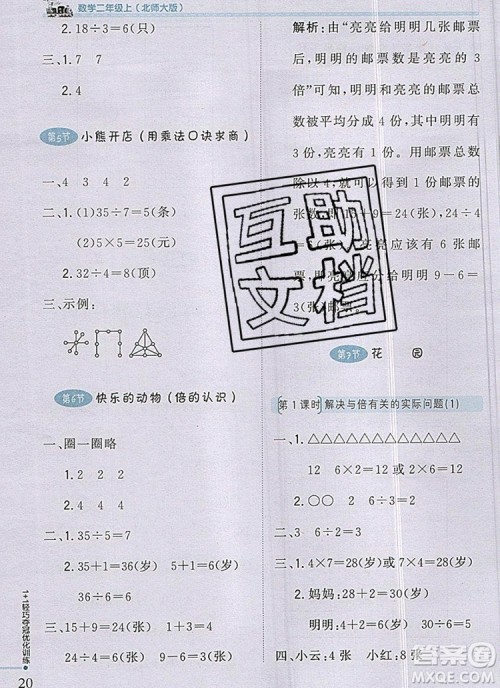 数学二年级上(北师大版)
2.18÷3=6(只)
三、1.7
2.4
第5节 小熊开店(用乘法口诀求商)
一、4 3 4 2
二、1.(1)35÷7=5(条)
(2)5×5=25(元)
2.32÷4=8(顶)
三、示例:
第6节 快乐的动物(倍的认识)
一、圈一圈略
1.2 2
2.4 4
二、1.35÷5=7
2.1+35=36(岁) 5+1=6(岁)
36÷6=6
三、15+9=24(张)
24÷4=6(张) 9-6=3(张)
1+1轻巧夺冠优化训练
20
解析:由“亮亮给明明几张邮票
后,明明的邮票张数是亮亮的3
倍”可知,明明和亮亮的邮票总数
被平均分成4份,其中明明有
3份,亮亮有1份。用邮票总数
除以4,就可以得到1份邮票的
张数,即15+9=24(张)
24÷4=6(张),亮亮应该有6张邮
票,
明明9-6=
3(张)
第7节 花 园
第1课时 解决与倍有关的实际问题(1)
一、1.△△△△△△△△△△△△
12 6×2=12或2×6=12
2.○○ 2 6÷3=2
二、3 6÷2=3
三、1.4×7=28(岁)或7×4=28(岁)
2.妈妈:28+2=30(岁)
明明:4+2=6(岁) 30÷6=5
四、小云:4张 小红:8张
互助文档
答案圈
MXQE.COM